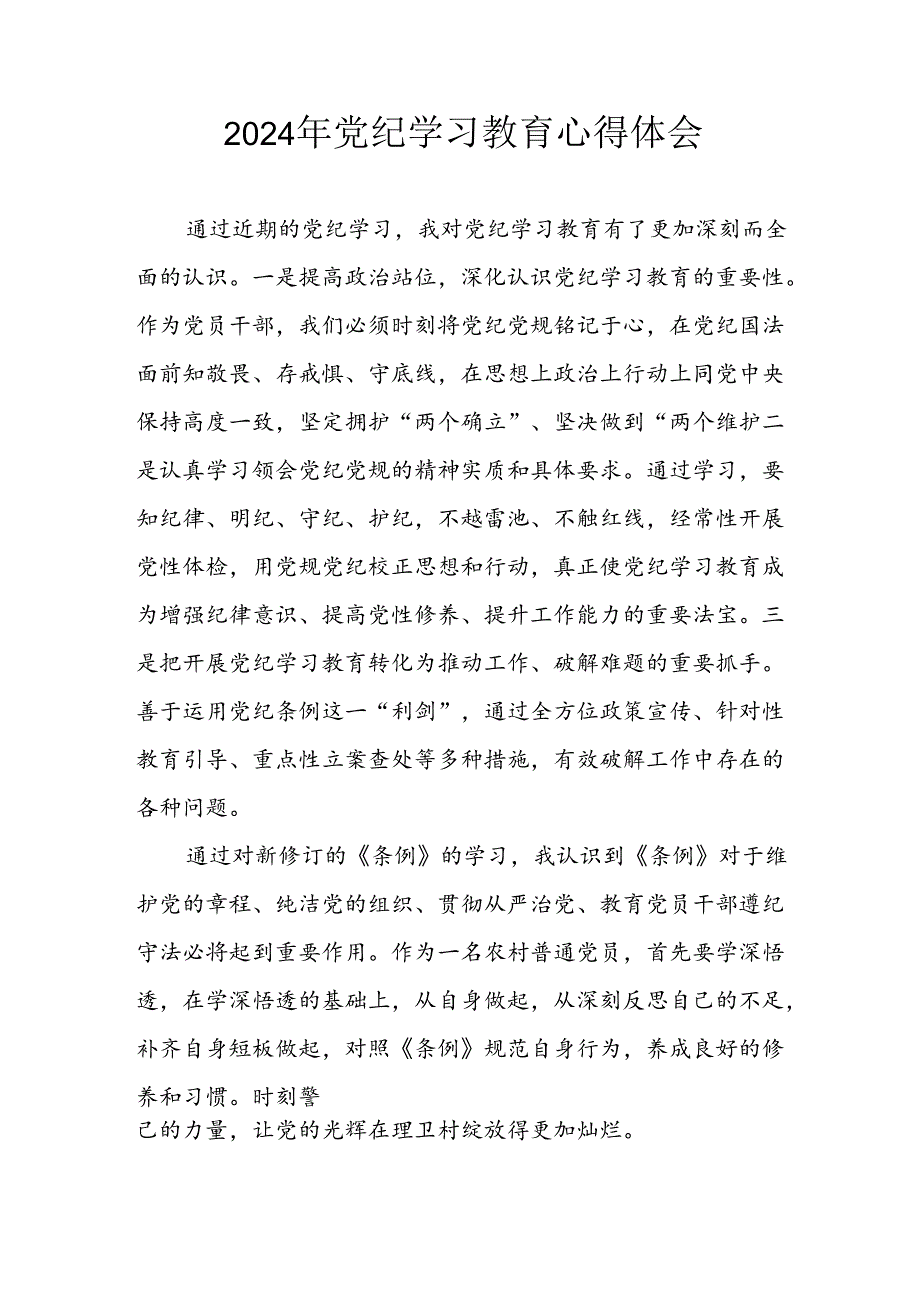 2024年党纪学习教育心得体会
通过近期的党纪学习，我对党纪学习教育有了更加深刻而全
面的认识。一是提高政治站位，深化认识党纪学习教育的重要性。
作为党员干部，我们必须时刻将党纪党规铭记于心，在党纪国法
面前知敬畏、存戒惧、守底线，在思想上政治上行动上同党中央
保持高度一致，坚定拥护“两个确立”、坚决做到“两个维护二
是认真学习领会党纪党规的精神实质和具体要求。通过学习，要
知纪律、明纪、守纪、护纪，不越雷池、不触红线，经常性开展
党性体检，用党规党纪校正思想和行动，真正使党纪学习教育成
为增强纪律意识、提高党性修养、提升工作能力的重要法宝。三
是把开展党纪学习教育转化为推动工作、破解难题的重要抓手。
善于运用党纪条例这一“利剑”，通过全方位政策宣传、针对性
教育引导、重点性立案查处等多种措施，有效破解工作中存在的
各种问题。
通过对新修订的《条例》的学习，我认识到《条例》对于维
护党的章程、纯洁党的组织、贯彻从严治党、教育党员干部遵纪
守法必将起到重要作用。作为一名农村普通党员，首先要学深悟
透，在学深悟透的基础上，从自身做起，从深刻反思自己的不足，
补齐自身短板做起，对照《条例》规范自身行为，养成良好的修
养和习惯。时刻警
己的力量，让党的光辉在理卫村绽放得更加灿烂。